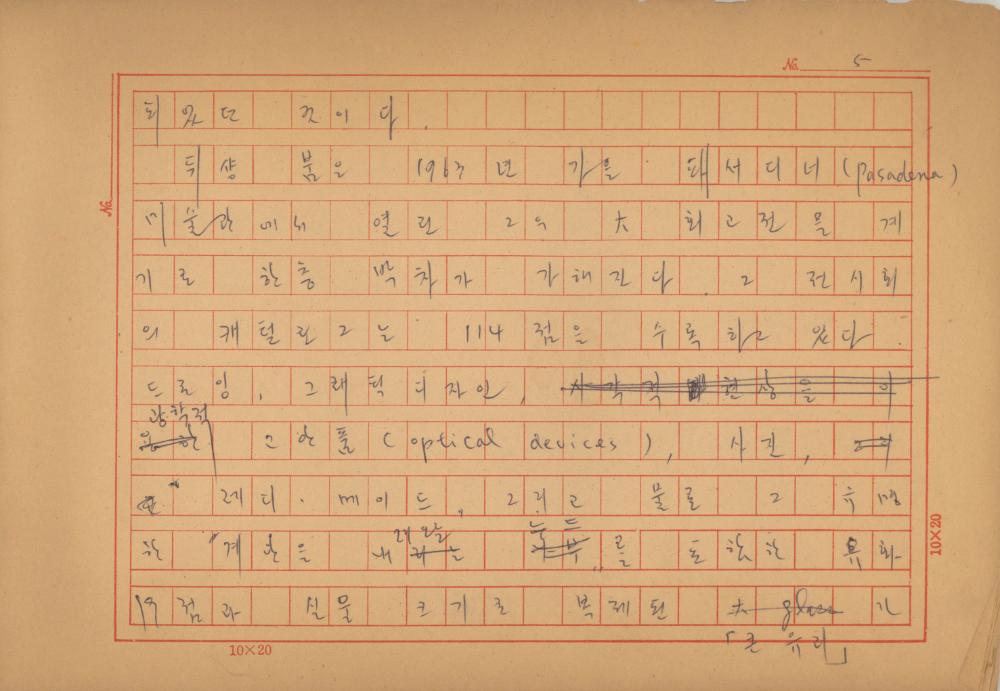 No. 5
되었던 것이다.
뒤샹 붐은 1963년 가을 파서디너 (pasadena)
미술관에서 열린 그의 大회고전을 계
기로 한층 박차가 가해진다. 그 전시회
의 캐털로그는 114점을 수록하고 있다.
드로잉, 그래픽 디자인, 시각적 현상을
광학적
고안품 (optical devices), 사진,
"레디·메이드", 그리고 물론 그 유명
누드
한 "계단을 내려오는 를 포함한 유화
19점과 실물 크기로 복제된 大 glass가
「큰 유리」
No.
10×20
10×20